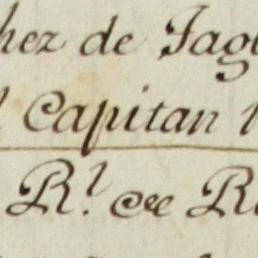 hez de Tagl
l Capitan
R.l de R